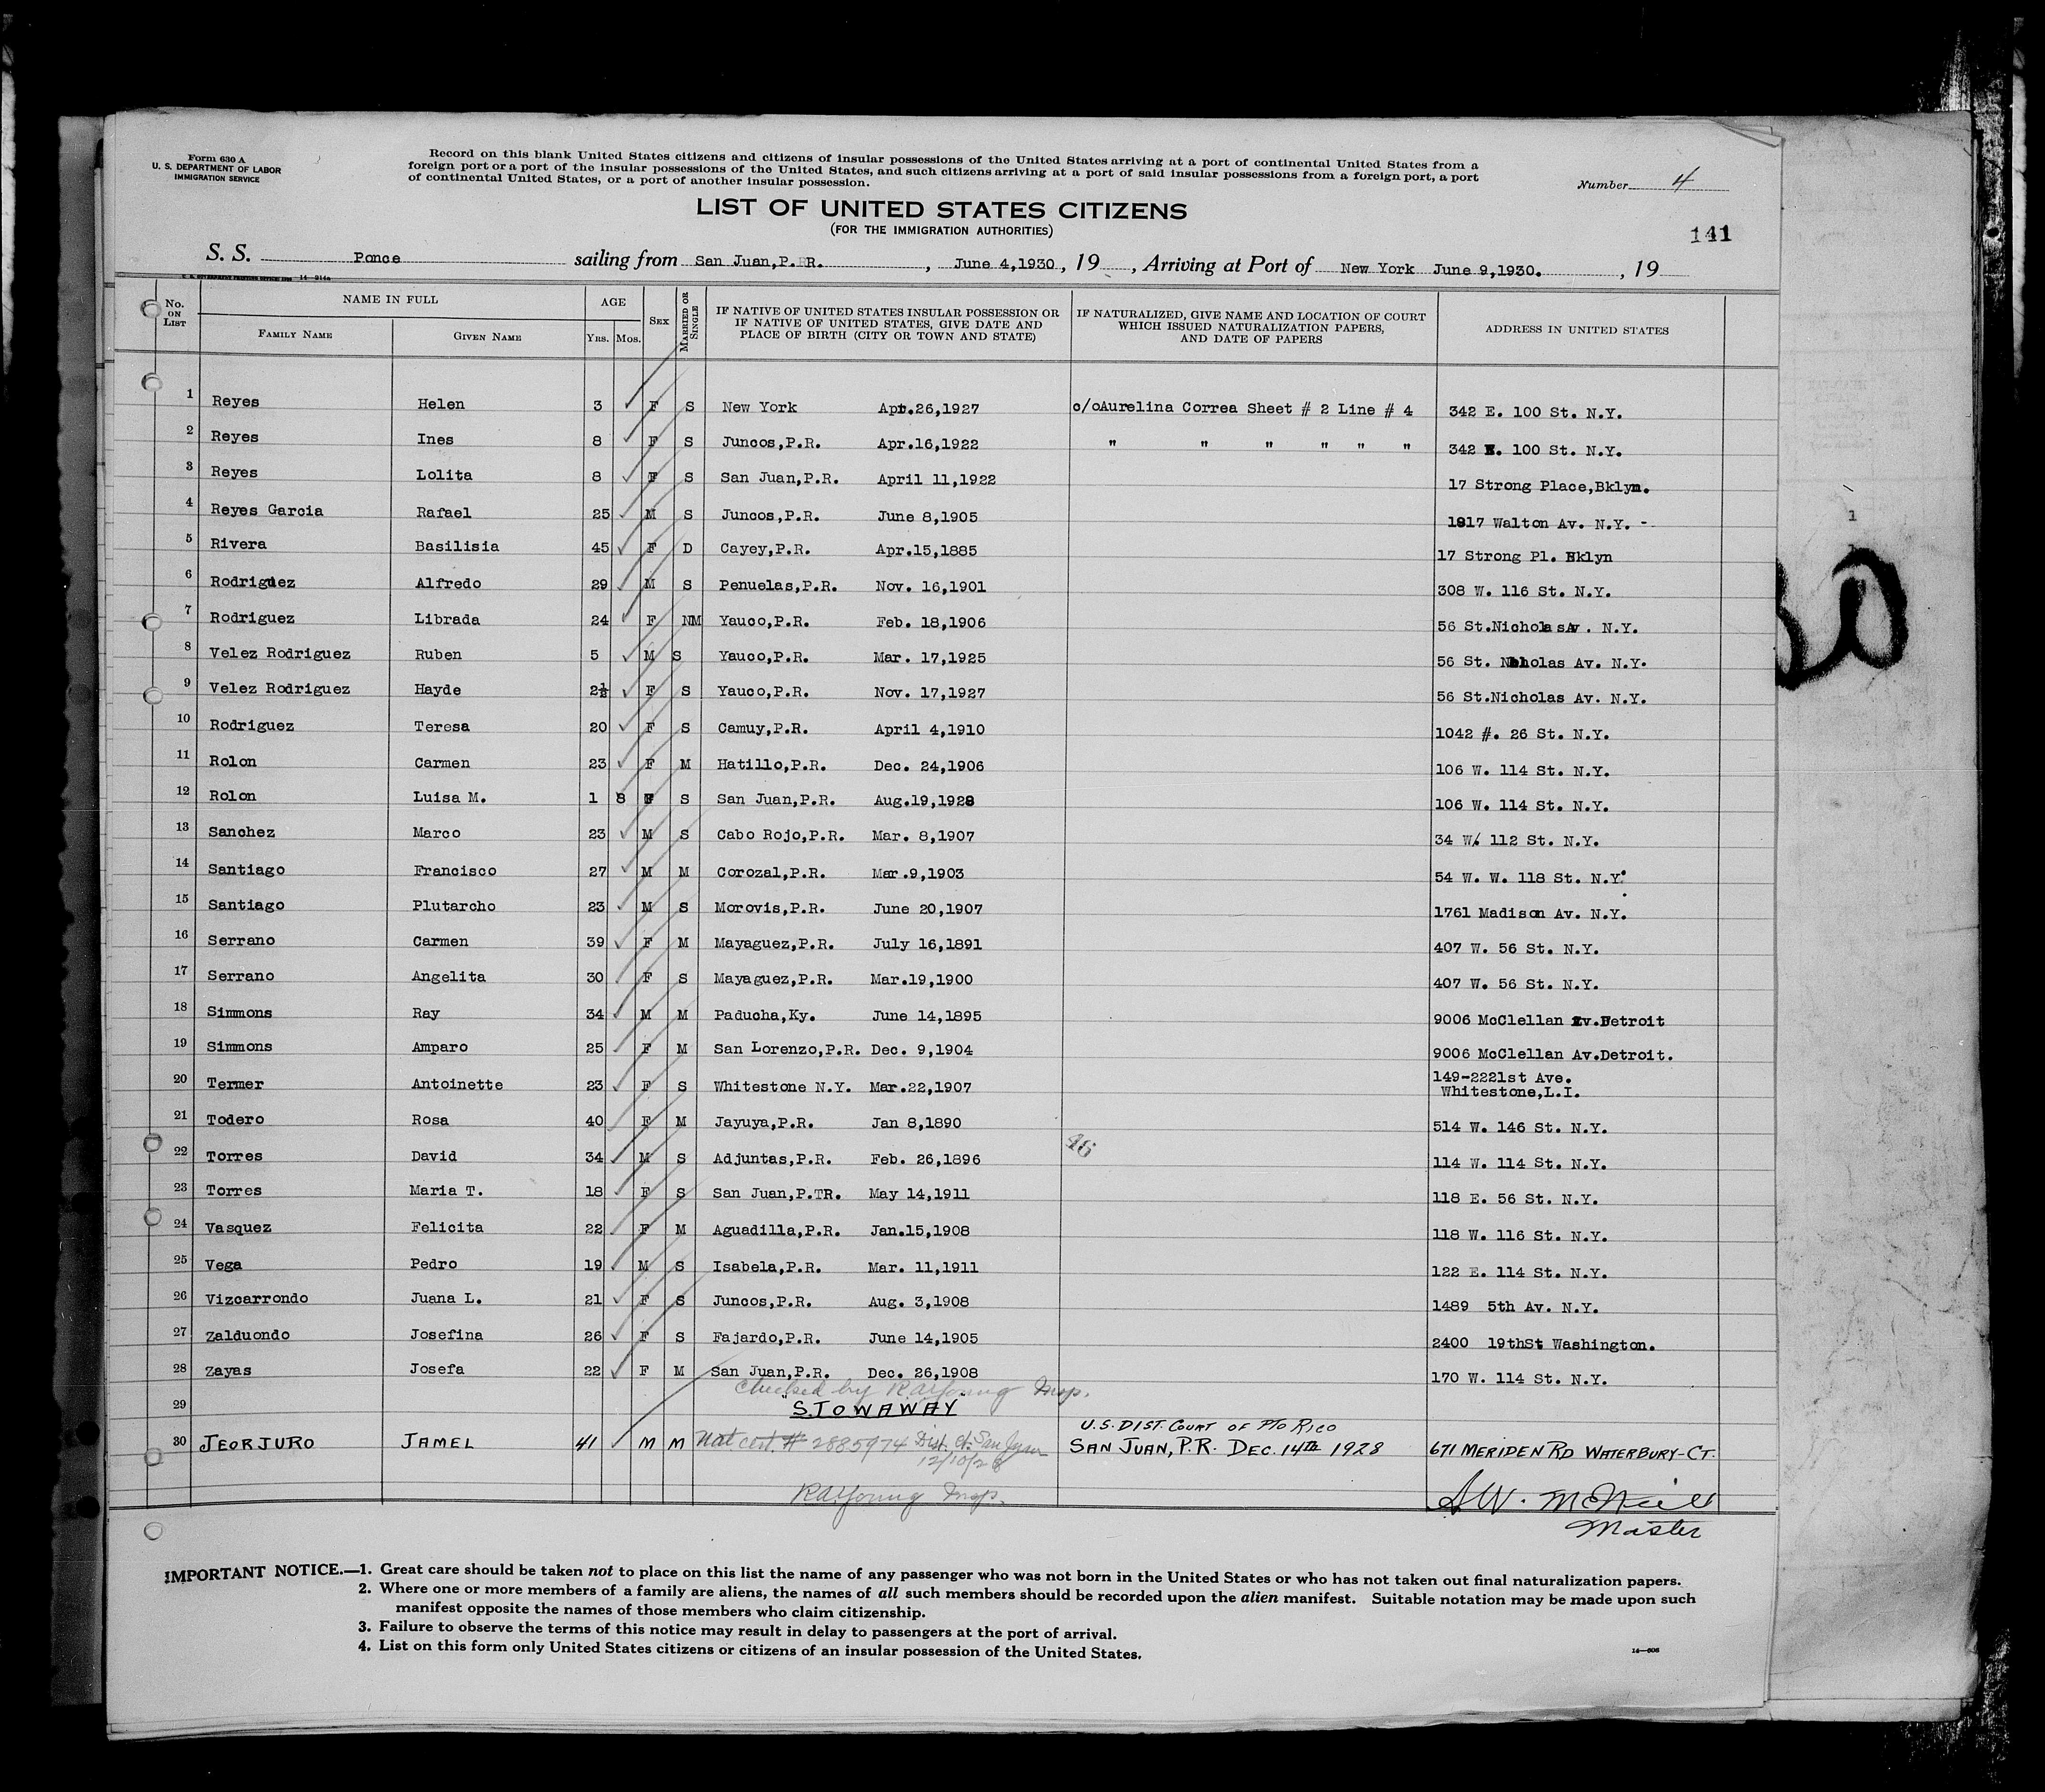 Form 630 A
U. S. DEPARTMENT OF LABOR
IMMIGRATION SERVICE
Record on this blank United States citizens and citizens of insular possessions of the United States arriving at a port of continental United States from a
foreign port or a port of the insular possessions of the United States, and such citizens arriving at a port of said insular possessions from a foreign port, a port
of continental United States, or a port of another insular possession.
Number 4
LIST OF UNITED STATES CITIZENS
(FOR THE IMMIGRATION AUTHORITIES)
141
S. S. Ponce sailing from San Juan,P.R. , June 4,1930 , 19 , Arriving at Port of New York June 9,1930. , 19
No. ON LIST NAME IN FULL FAMILY NAME GIVEN NAME AGE YRS. MOS. SEX MARRIED OR SINGLE IF NATIVE OF UNITED STATES INSULAR POSSESSION OR IF NATIVE OF UNITED STATES, GIVE DATE AND PLACE OF BIRTH (CITY OR TOWN AND STATE) IF NATURALIZED, GIVE NAME AND LOCATION OF COURT WHICH ISSUED NATURALIZATION PAPERS, AND DATE OF PAPERS ADDRESS IN UNITED STATES
1 Reyes Helen 3 F S New York Apr.26,1927 c/oAurelina Correa Sheet # 2 Line # 4 342 E. 100 St. N.Y.
2 Reyes Ines 8 F S Juncos,P.R. Apr.16,1922 " " " " " " 342 E. 100 St. N.Y.
3 Reyes Lolita 8 F S San Juan,P.R. April 11,1922 17 Strong Place,Bklyn.
4 Reyes Garcia Rafael 25 M S Juncos,P.R. June 8,1905 1817 Walton Av. N.Y. -
5 Rivera Basilisia 45 F D Cayey,P.R. Apr.15,1885 17 Strong Pl. Bklyn
6 Rodriguez Alfredo 29 M S Penuelas,P.R. Nov. 16,1901 308 W. 116 St. N.Y.
7 Rodriguez Librada 24 F NM Yauco,P.R. Feb. 18,1906 56 St.Nicholas Av. N.Y.
8 Velez Rodriguez Ruben 5 M S Yauco,P.R. Mar. 17,1925 56 St. Nicholas Av. N.Y.
9 Velez Rodriguez Hayde 2½ F S Yauco,P.R. Nov. 17,1927 56 St.Nicholas Av. N.Y.
10 Rodriguez Teresa 20 F S Camuy,P.R. April 4,1910 1042 #. 26 St. N.Y.
11 Rolon Carmen 23 F M Hatillo,P.R. Dec. 24,1906 106 W. 114 St. N.Y.
12 Rolon Luisa M. 1 8 F S San Juan,P.R. Aug.19,1928 106 W. 114 St. N.Y.
13 Sanchez Marco 23 M S Cabo Rojo,P.R. Mar. 8,1907 34 W. 112 St. N.Y.
14 Santiago Francisco 27 M M Corozal,P.R. Mar.9,1903 54 W. W. 118 St. N.Y.
15 Santiago Plutarcho 23 M S Morovis,P.R. June 20,1907 1761 Madison Av. N.Y.
16 Serrano Carmen 39 F M Mayaguez,P.R. July 16,1891 407 W. 56 St. N.Y.
17 Serrano Angelita 30 F S Mayaguez,P.R. Mar.19,1900 407 W. 56 St. N.Y.
18 Simmons Ray 34 M M Paducha,Ky. June 14,1895 9006 McClellan Av.Detroit
19 Simmons Amparo 25 F M San Lorenzo,P.R. Dec. 9,1904 9006 McClellan Av.Detroit.
20 Termer Antoinette 23 F S Whitestone N.Y. Mar.22,1907 149-2221st Ave.
Whitestone,L.I.
21 Todero Rosa 40 F M Jayuya,P.R. Jan 8,1890 514 W. 146 St. N.Y.
46
22 Torres David 34 M S Adjuntas,P.R. Feb. 26,1896 114 W. 114 St. N.Y.
23 Torres Maria T. 18 F S San Juan,P.TR. May 14,1911 118 E. 56 St. N.Y.
24 Vasquez Felicita 22 F M Aguadilla,P.R. Jan.15,1908 118 W. 116 St. N.Y.
25 Vega Pedro 19 M S Isabela,P.R. Mar. 11,1911 122 E. 114 St. N.Y.
26 Vizcarrondo Juana L. 21 F S Juncos,P.R. Aug. 3,1908 1489 5th Av. N.Y.
27 Zalduondo Josefina 26 F S Fajardo,P.R. June 14,1905 2400 19thSt Washington.
28 Zayas Josefa 22 F M San Juan,P.R. Dec. 26,1908 170 W. 114 St. N.Y.
Checked by RA Young Insp.
29 "STOWAWAY"
U.S. DIST. COURT OF P/TO RICO
30 JEORJURO JAMEL 41 M M Nat cert. # 2885974 Dist. Ct. San Juan SAN JUAN, P.R. DEC. 14TH 1928 671 MERIDEN RD WATERBURY-CT.
12/10/28
RA Young Insp.
A W. McNeill
Master
IMPORTANT NOTICE.—1. Great care should be taken not to place on this list the name of any passenger who was not born in the United States or who has not taken out final naturalization papers.
2. Where one or more members of a family are aliens, the names of all such members should be recorded upon the alien manifest. Suitable notation may be made upon such
manifest opposite the names of those members who claim citizenship.
3. Failure to observe the terms of this notice may result in delay to passengers at the port of arrival.
4. List on this form only United States citizens or citizens of an insular possession of the United States.